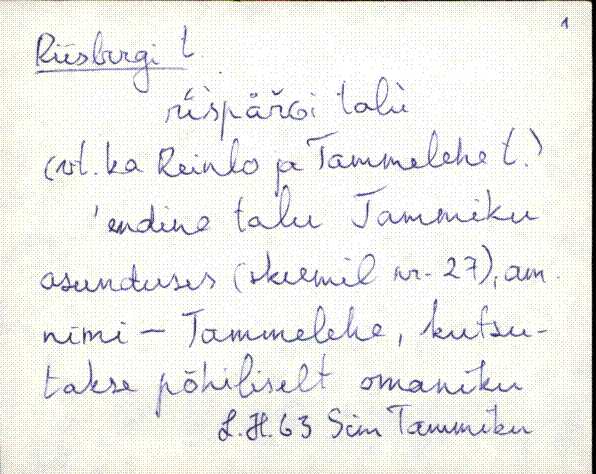 1
Riisbergi t.
rìispär̀gi talù
(vt. ka Reinlo ja Tammelehe t.)
'endine talu Tammiku
asunduses (skeemil nr. 27), am.
nimi – Tammelehe, kutsu-
takse põhiliselt omaniku
L.H. 63 Sim Tammiku